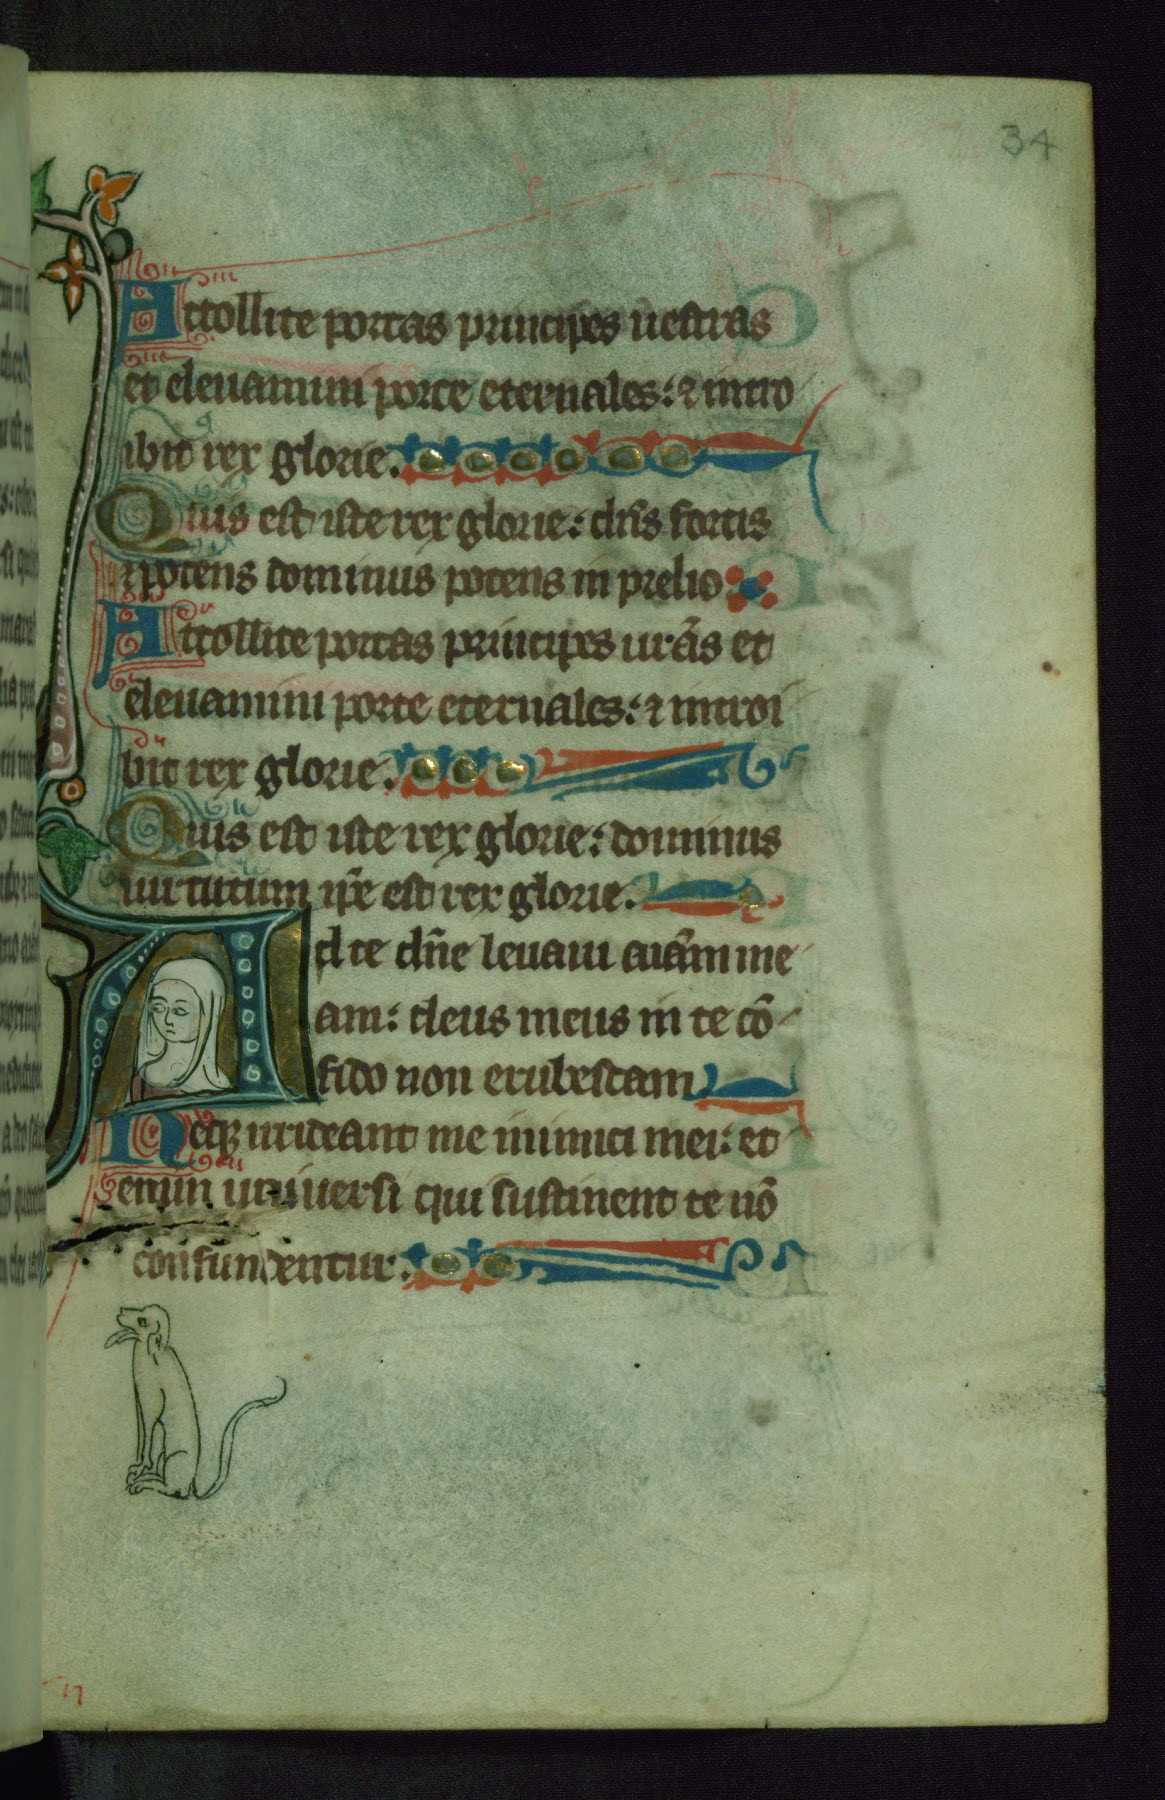 34
Attollite portas principes uestras
et eleuamini porte eternales: ⁊ intro
ibit rex glorie.
Quis est iste rex glorie: dn̄s fortis
⁊ potens dominus potens in prelio
Attollite portas principes ur̄as et
eleuamini porte eternales: ⁊ introi
bit rex glorie.
Quis est iste rex glorie: dominus
uirtutum ip̄e est rex glorie.
Ad te dn̄e leuaui aīam me
am: deus meus in te cō
fido non erubescam
Neq; irrideant me inimici mei: et
enim uniuersi qui sustinent te nō
confundentur.